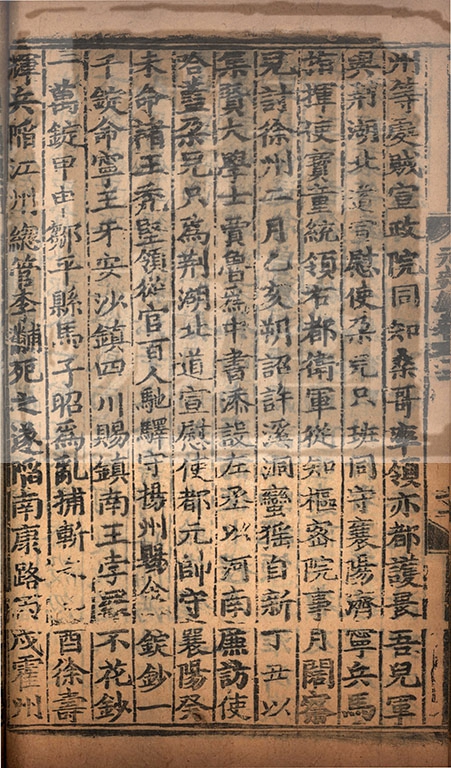 州等處賊宣政院同知桑哥率領亦都護畏吾兒軍
與荊湖北道宣慰使朶兒只班同守襄陽濟寧兵馬
指揮使寶童統領右都衛軍從知樞密院事月闊察
兒討徐州二月乙亥朔詔許溪洞蠻猺自新丁丑以
集賢大學士賈魯爲中書添設左丞以河南廉訪使
哈藍朶兒只爲荊湖北道宣慰使都元帥守襄陽癸
未命諸王禿堅領從官百人馳驛守揚州賜金錠鈔一
千錠命寧王牙安沙鎮四川賜鎮南王孛羅不花鈔
萬錠甲申鄒平縣馬子昭爲亂捕斬之酉徐壽
輝兵陷江州總管李黼死之遂陷南康路丙戌霍州